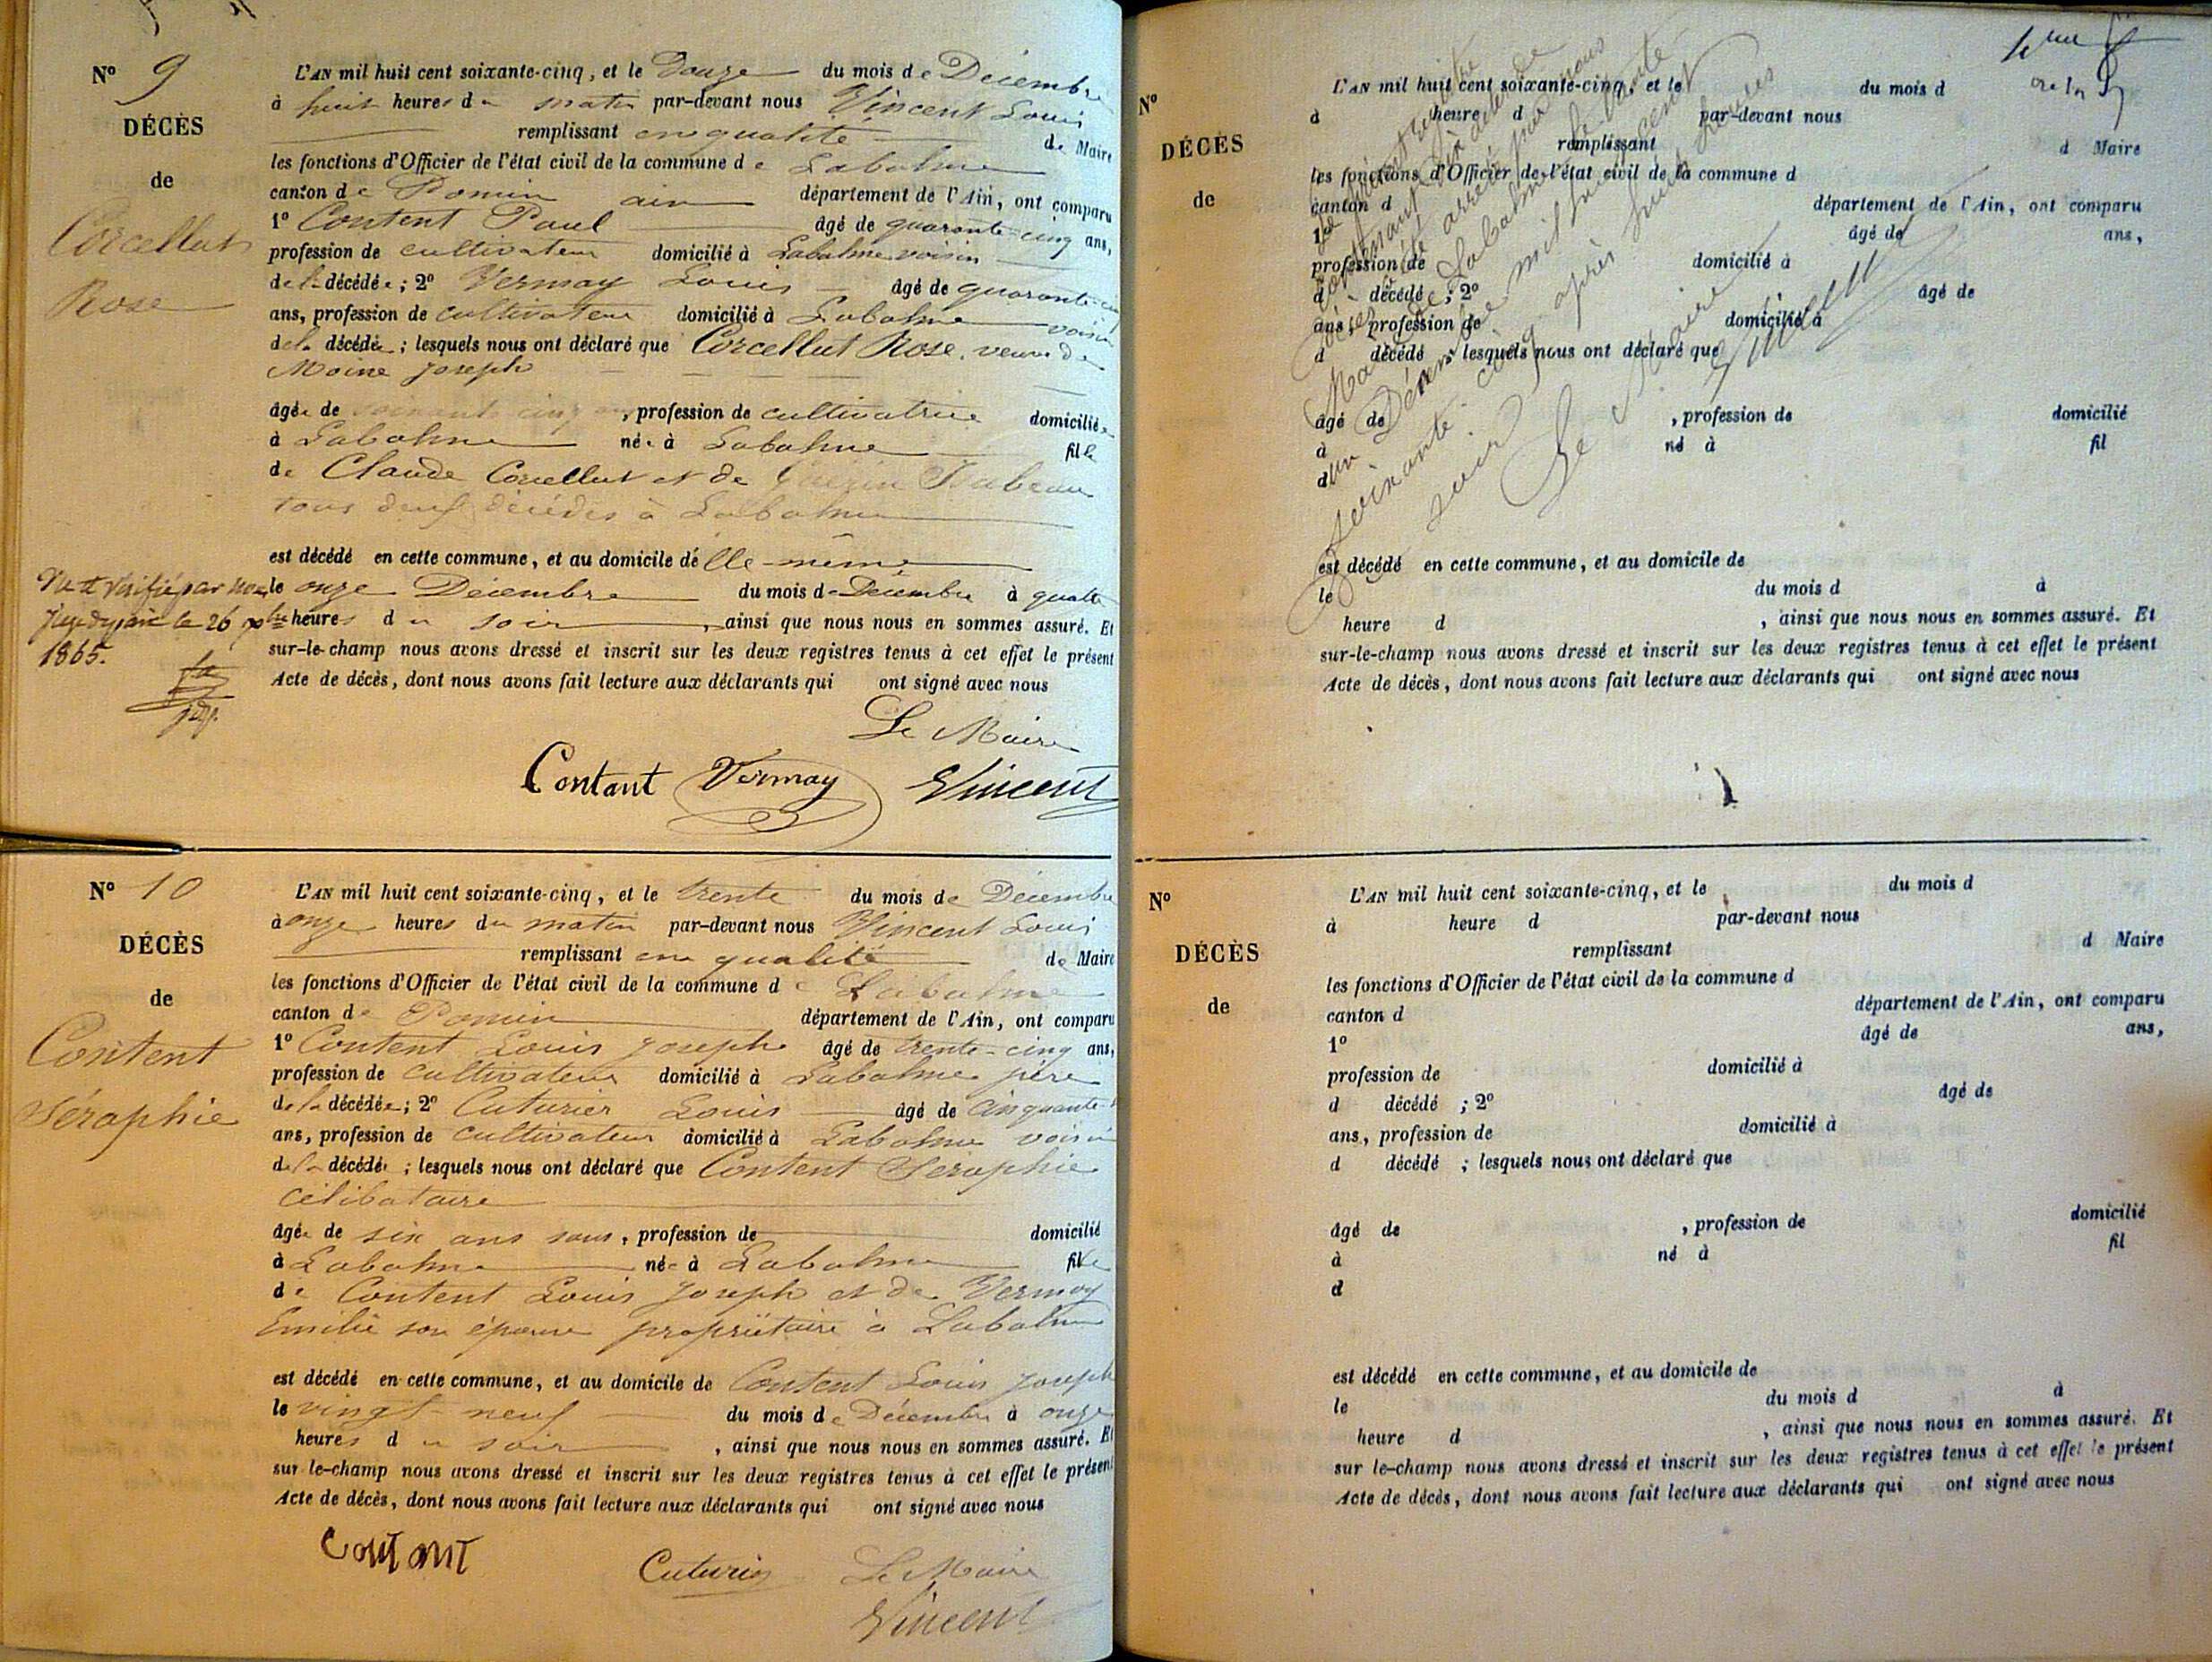 N° 9
DÉCÈS
de
Corcellut
Rose
L'AN mil huit cent soixante-cinq, et le douze du mois de Décembre
à huit heures du matin par-devant nous Vincent Louis
remplissant en qualité de Maire
les fonctions d'Officier de l'état civil de la commune de Labalme
canton de Poncin ain département de l'Ain, ont comparu
1° Content Paul âgé de quarante-cinq ans,
profession de cultivateur domicilié à Labalme voisin
de la décédée; 2° Vermay Louis âgé de quarante-cinq
ans, profession de cultivateur domicilié à Labalme voisin
de la décédée; lesquels nous ont déclaré que Corcellut Rose, veuve de
Moine Joseph
âgée de soixante cinq ans, profession de cultivatrice domiciliée
à Labalme née à Labalme fille
de Claude Corcellut et de Isabeau
tous deux décédés à Labalme
est décédé en cette commune, et au domicile d'elle-même
le onze Décembre du mois de Décembre à quatre
heures du soir, ainsi que nous nous en sommes assuré. Et
sur-le-champ nous avons dressé et inscrit sur les deux registres tenus à cet effet le présent
Acte de décès, dont nous avons fait lecture aux déclarants qui ont signé avec nous
Vu et vérifié par nous
juge de paix le 26 xbre
1865.
Le Maire
Contant Vermay Vincent
N° 10
DÉCÈS
de
Content
Séraphie
L'AN mil huit cent soixante-cinq, et le trente du mois de Décembre
à onze heures du matin par-devant nous Vincent Louis
remplissant en qualité de Maire
les fonctions d'Officier de l'état civil de la commune de Labalme
canton de Poncin département de l'Ain, ont comparu
1° Content Louis Joseph âgé de trente-cinq ans,
profession de cultivateur domicilié à Labalme père
de la décédée; 2° Cuturier Louis âgé de cinquante
ans, profession de cultivateur domicilié à Labalme voisin
de la décédée; lesquels nous ont déclaré que Content Séraphie
célibataire
âgée de six ans sans, profession de domicilié
à Labalme née à Labalme fille
de Content Louis Joseph et de Vermay
Emilie son épouse propriétaire à Labalme
est décédé en cette commune, et au domicile de Content Louis Joseph
le vingt-neuf du mois de Décembre à onze
heures du soir, ainsi que nous nous en sommes assuré. Et
sur le-champ nous avons dressé et inscrit sur les deux registres tenus à cet effet le présent
Acte de décès, dont nous avons fait lecture aux déclarants qui ont signé avec nous
Contant
Cuturier Le Maire
Vincent
N°
DÉCÈS
de
L'AN mil huit cent soixante-cinq, et le du mois d
à heure d par-devant nous
remplissant d Maire
les fonctions d'Officier de l'état civil de la commune d
canton d département de l'Ain, ont comparu
1° âgé de ans,
profession de domicilié à
d décédé ; 2° âgé de
ans, profession de domicilié à
d décédé ; lesquels nous ont déclaré que
âgé de , profession de domicilié
à né à fil
d
est décédé en cette commune, et au domicile de
le du mois d à
heure d , ainsi que nous nous en sommes assuré. Et
sur-le-champ nous avons dressé et inscrit sur les deux registres tenus à cet effet le présent
Acte de décès, dont nous avons fait lecture aux déclarants qui ont signé avec nous
arrêté par nous
Maire de Labalme le trente
un Décembre mil huit cent
soixante cinq après huit heures
soir
Le Maire
Vincent
N°
DÉCÈS
de
L'AN mil huit cent soixante-cinq, et le du mois d
à heure d par-devant nous
remplissant d Maire
les fonctions d'Officier de l'état civil de la commune d
canton d département de l'Ain, ont comparu
1° âgé de ans,
profession de domicilié à
d décédé ; 2° âgé de
ans, profession de domicilié à
d décédé ; lesquels nous ont déclaré que
âgé de , profession de domicilié
à né à fil
d
est décédé en cette commune, et au domicile de
le du mois d à
heure d , ainsi que nous nous en sommes assuré. Et
sur le-champ nous avons dressé et inscrit sur les deux registres tenus à cet effet le présent
Acte de décès, dont nous avons fait lecture aux déclarants qui ont signé avec nous